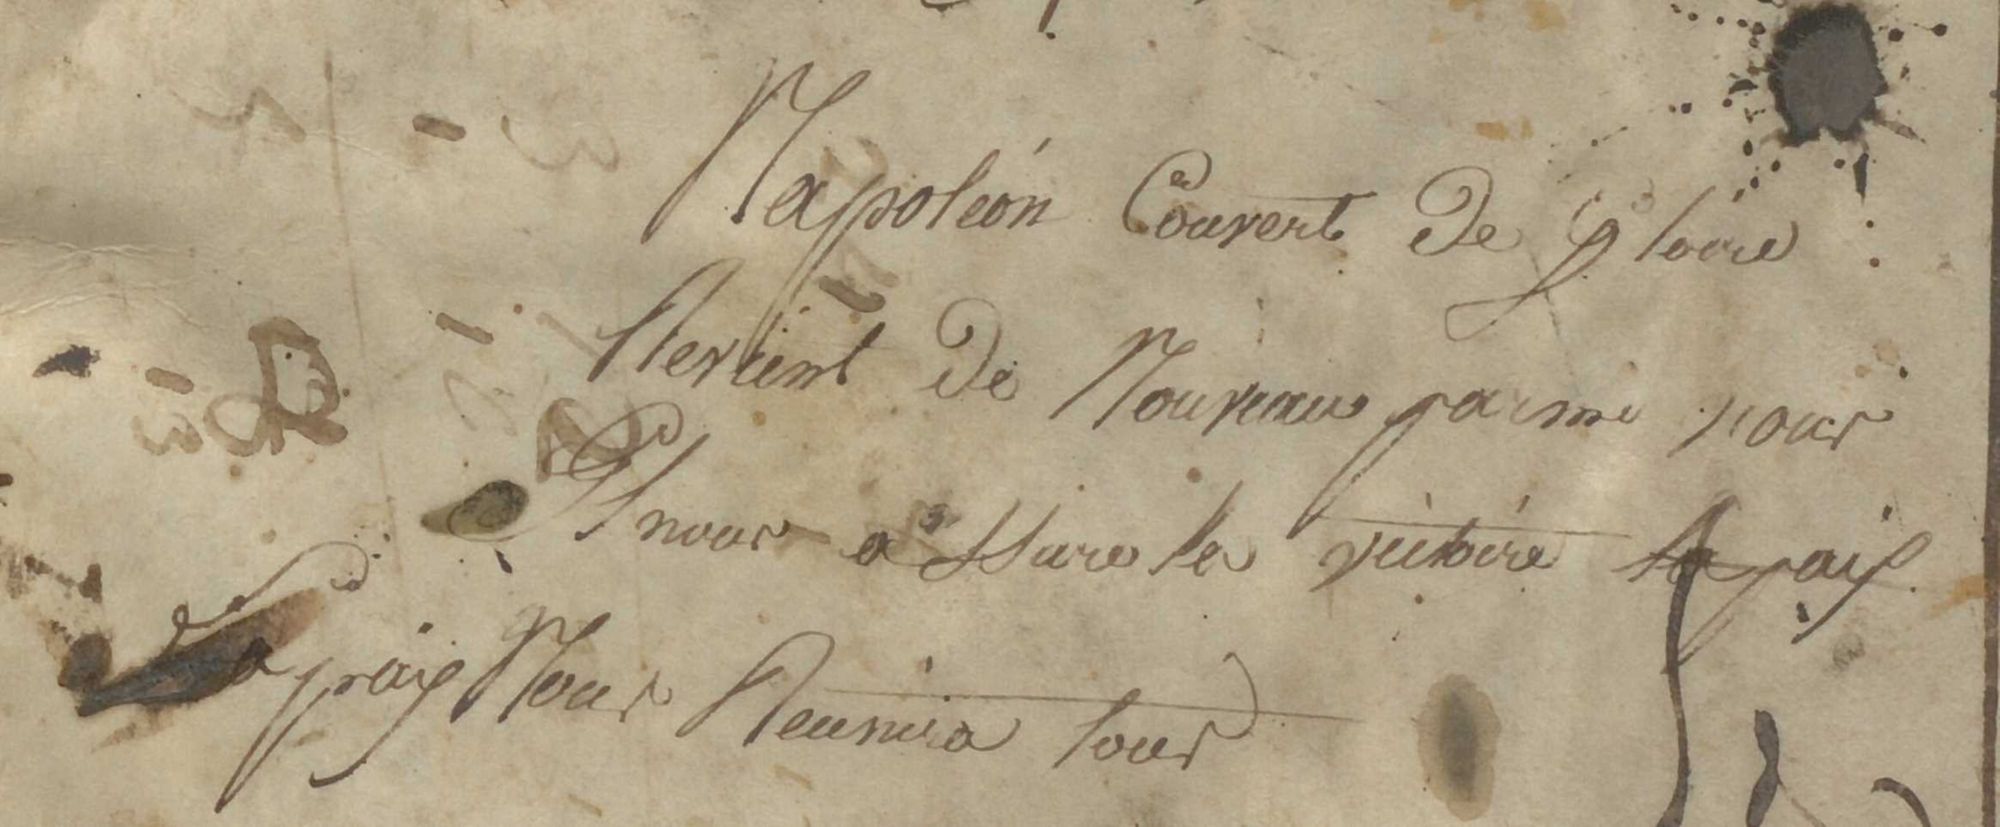 Napoléon Couvert De gloire
Revient De Nouveau parmi nous
Il nous assure la victoire la paix
La paix Nous Reunira tous